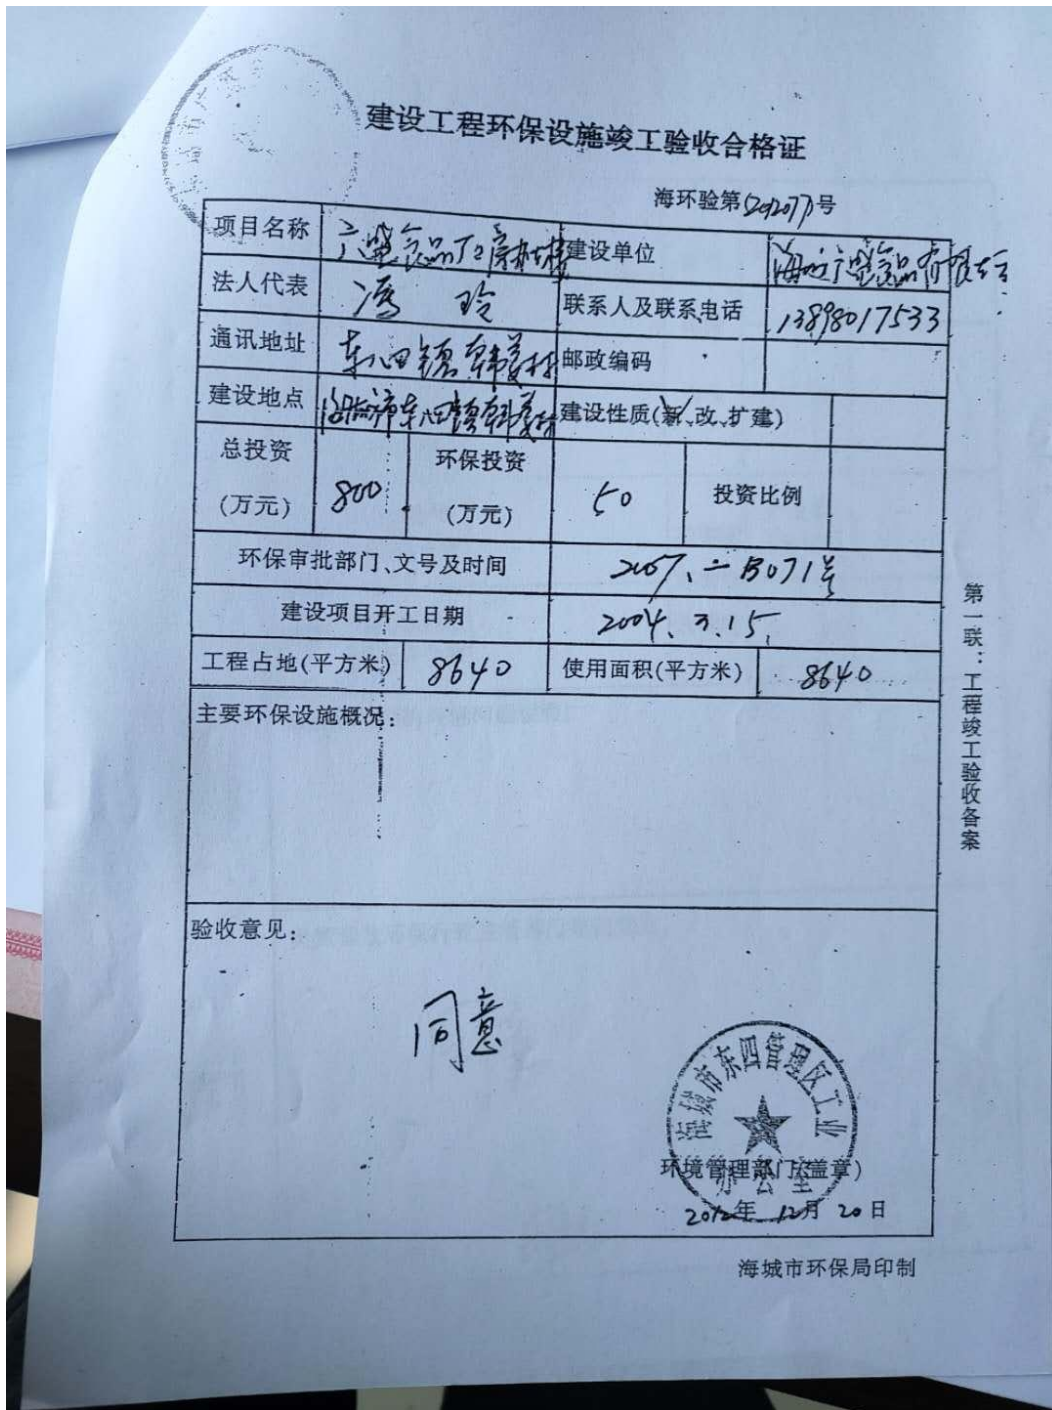 建设工程环保设施竣工验收合格证
海环验第(2012077)号
项目名称 广盛食品厂厂房办公楼 建设单位 海城广盛食品有限公司
法人代表 冯 玲 联系人及联系电话 13898017533
通讯地址 东四镇韩姜村 邮政编码
建设地点 海城市东四镇韩姜村 建设性质(新、改、扩建)
总投资(万元) 800 环保投资(万元) 50 投资比例
环保审批部门、文号及时间 B071号
建设项目开工日期 2004.3.15.
工程占地(平方米) 8640 使用面积(平方米) 8640
主要环保设施概况:
验收意见:
同意
海城市东四管理区工业
办公室
环境管理部门(盖章)
2012年 12月 20日
海城市环保局印制
第一联:工程竣工验收备案